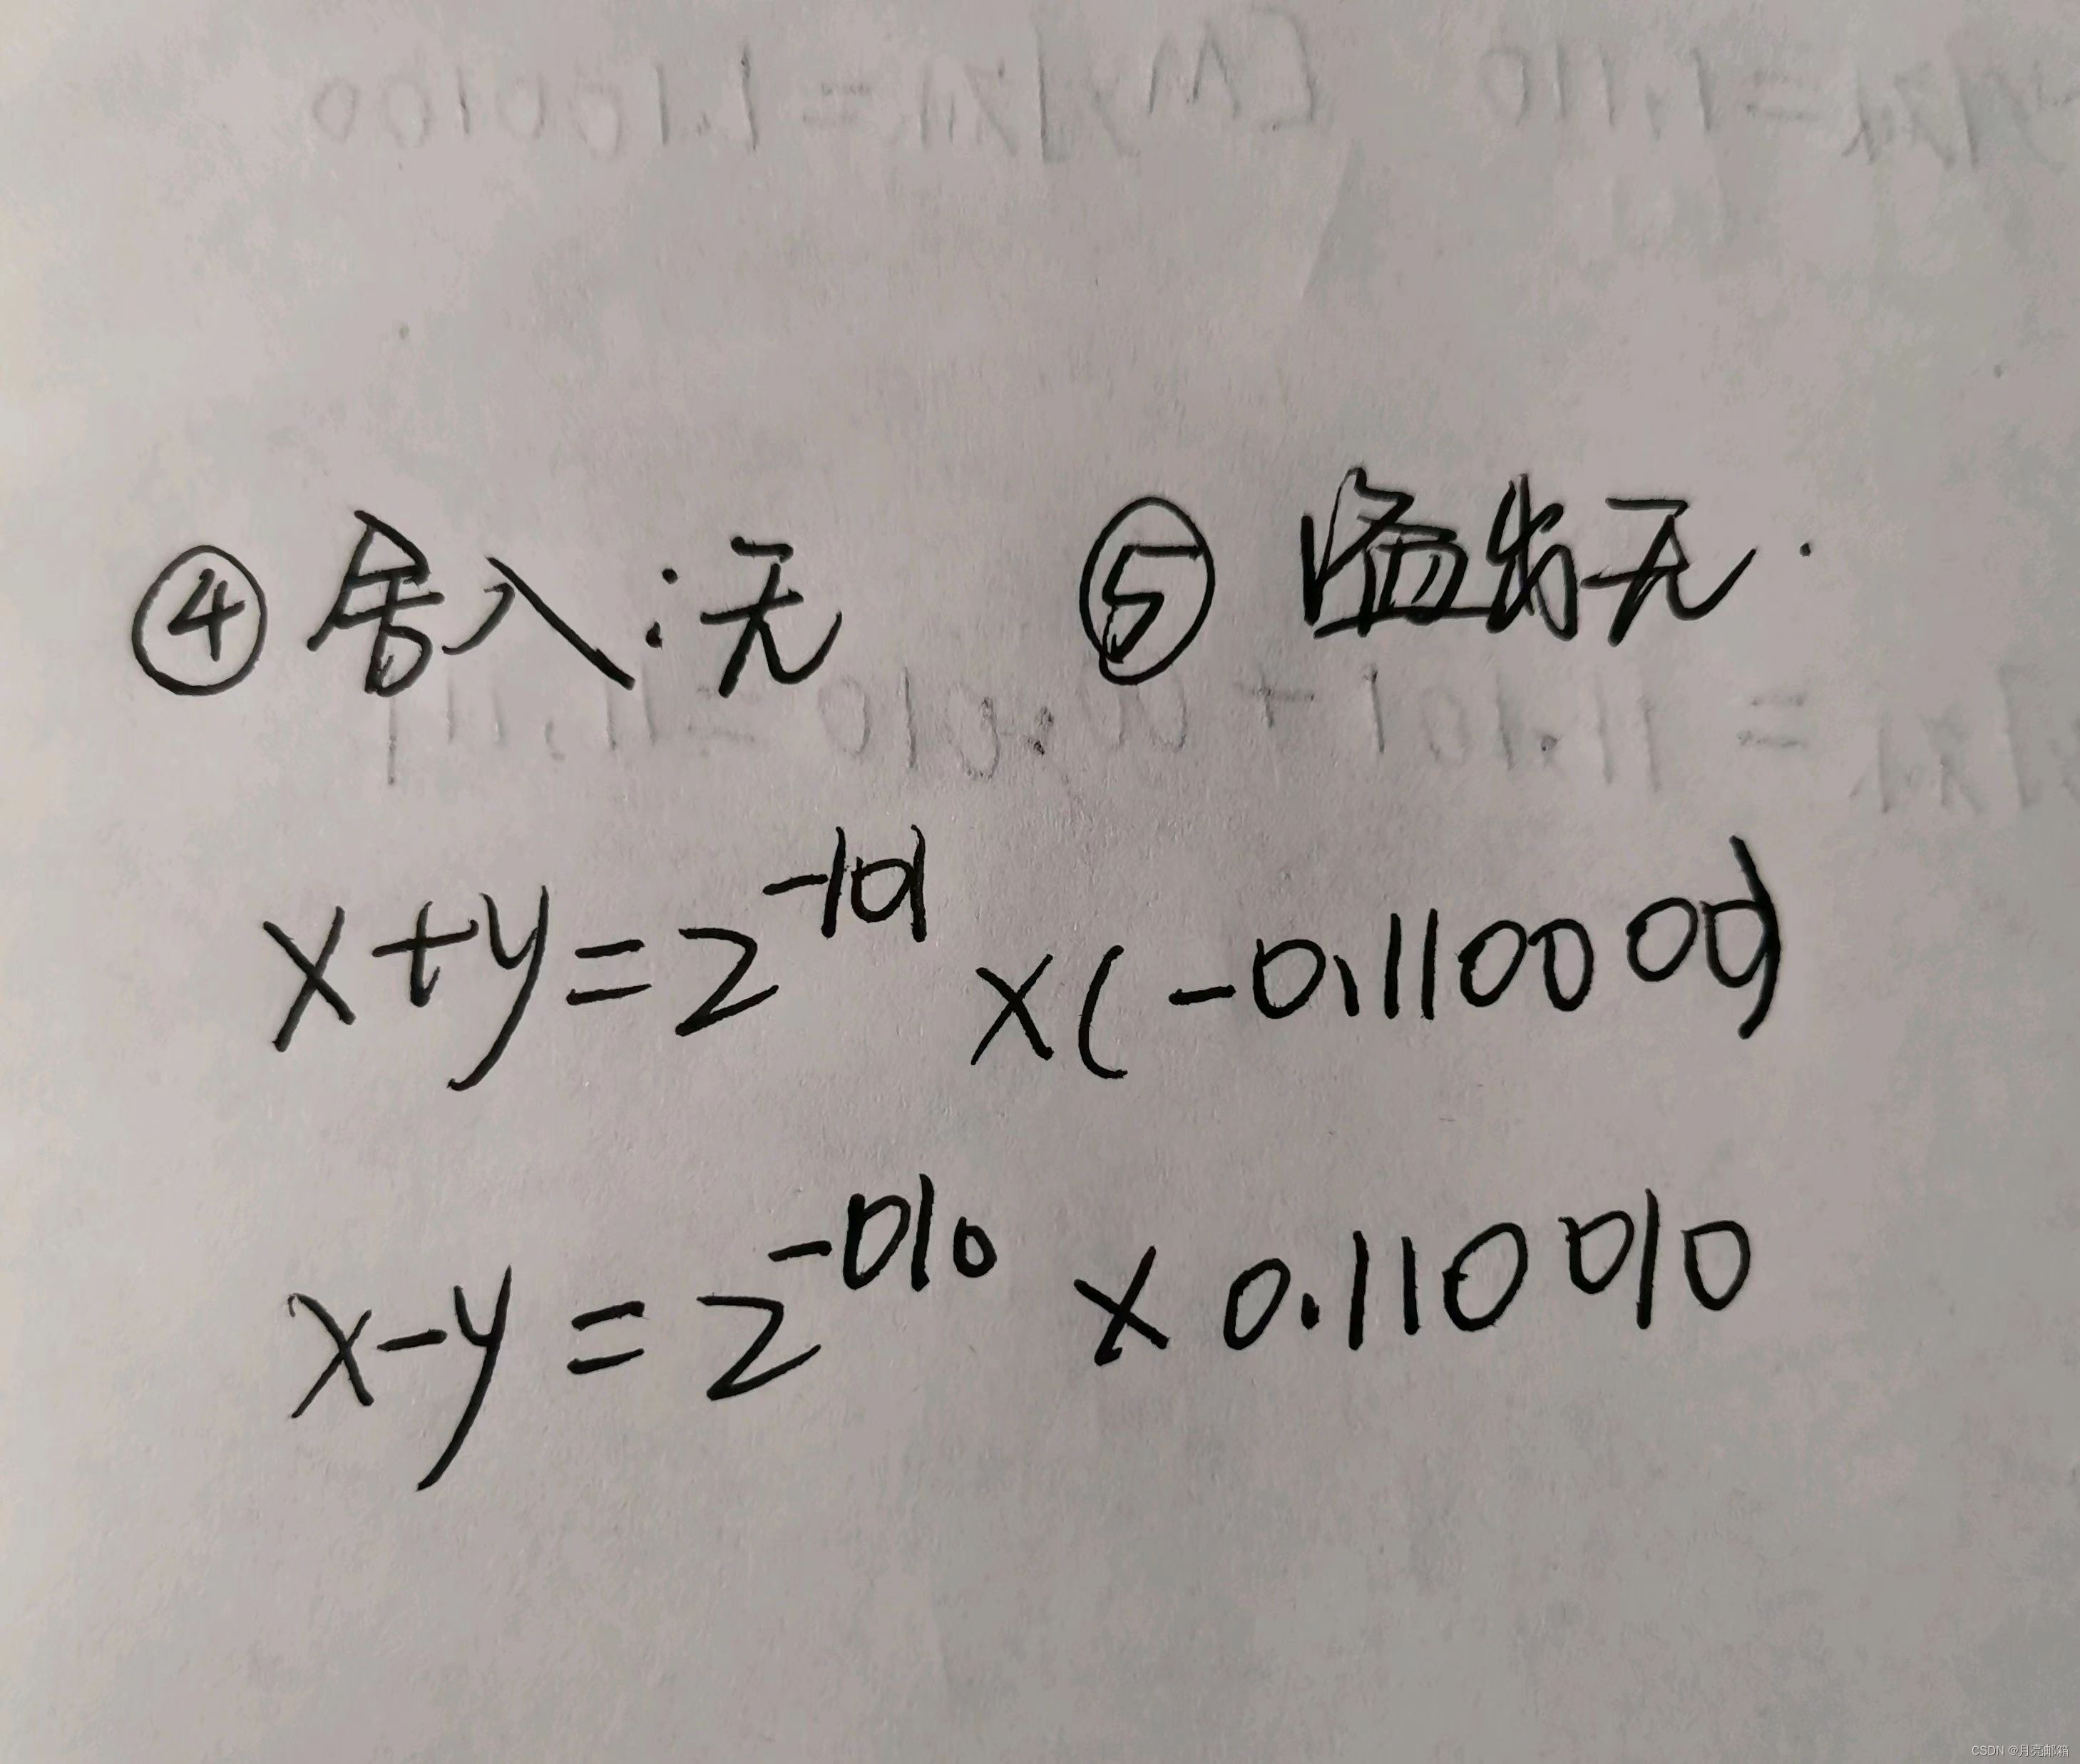 ④ 舍入：无 ⑤ 溢出无.
x+y=2^-101 ×(-0.110000)
x-y=2^-010 ×0.110010
CSDN @月亮邮箱